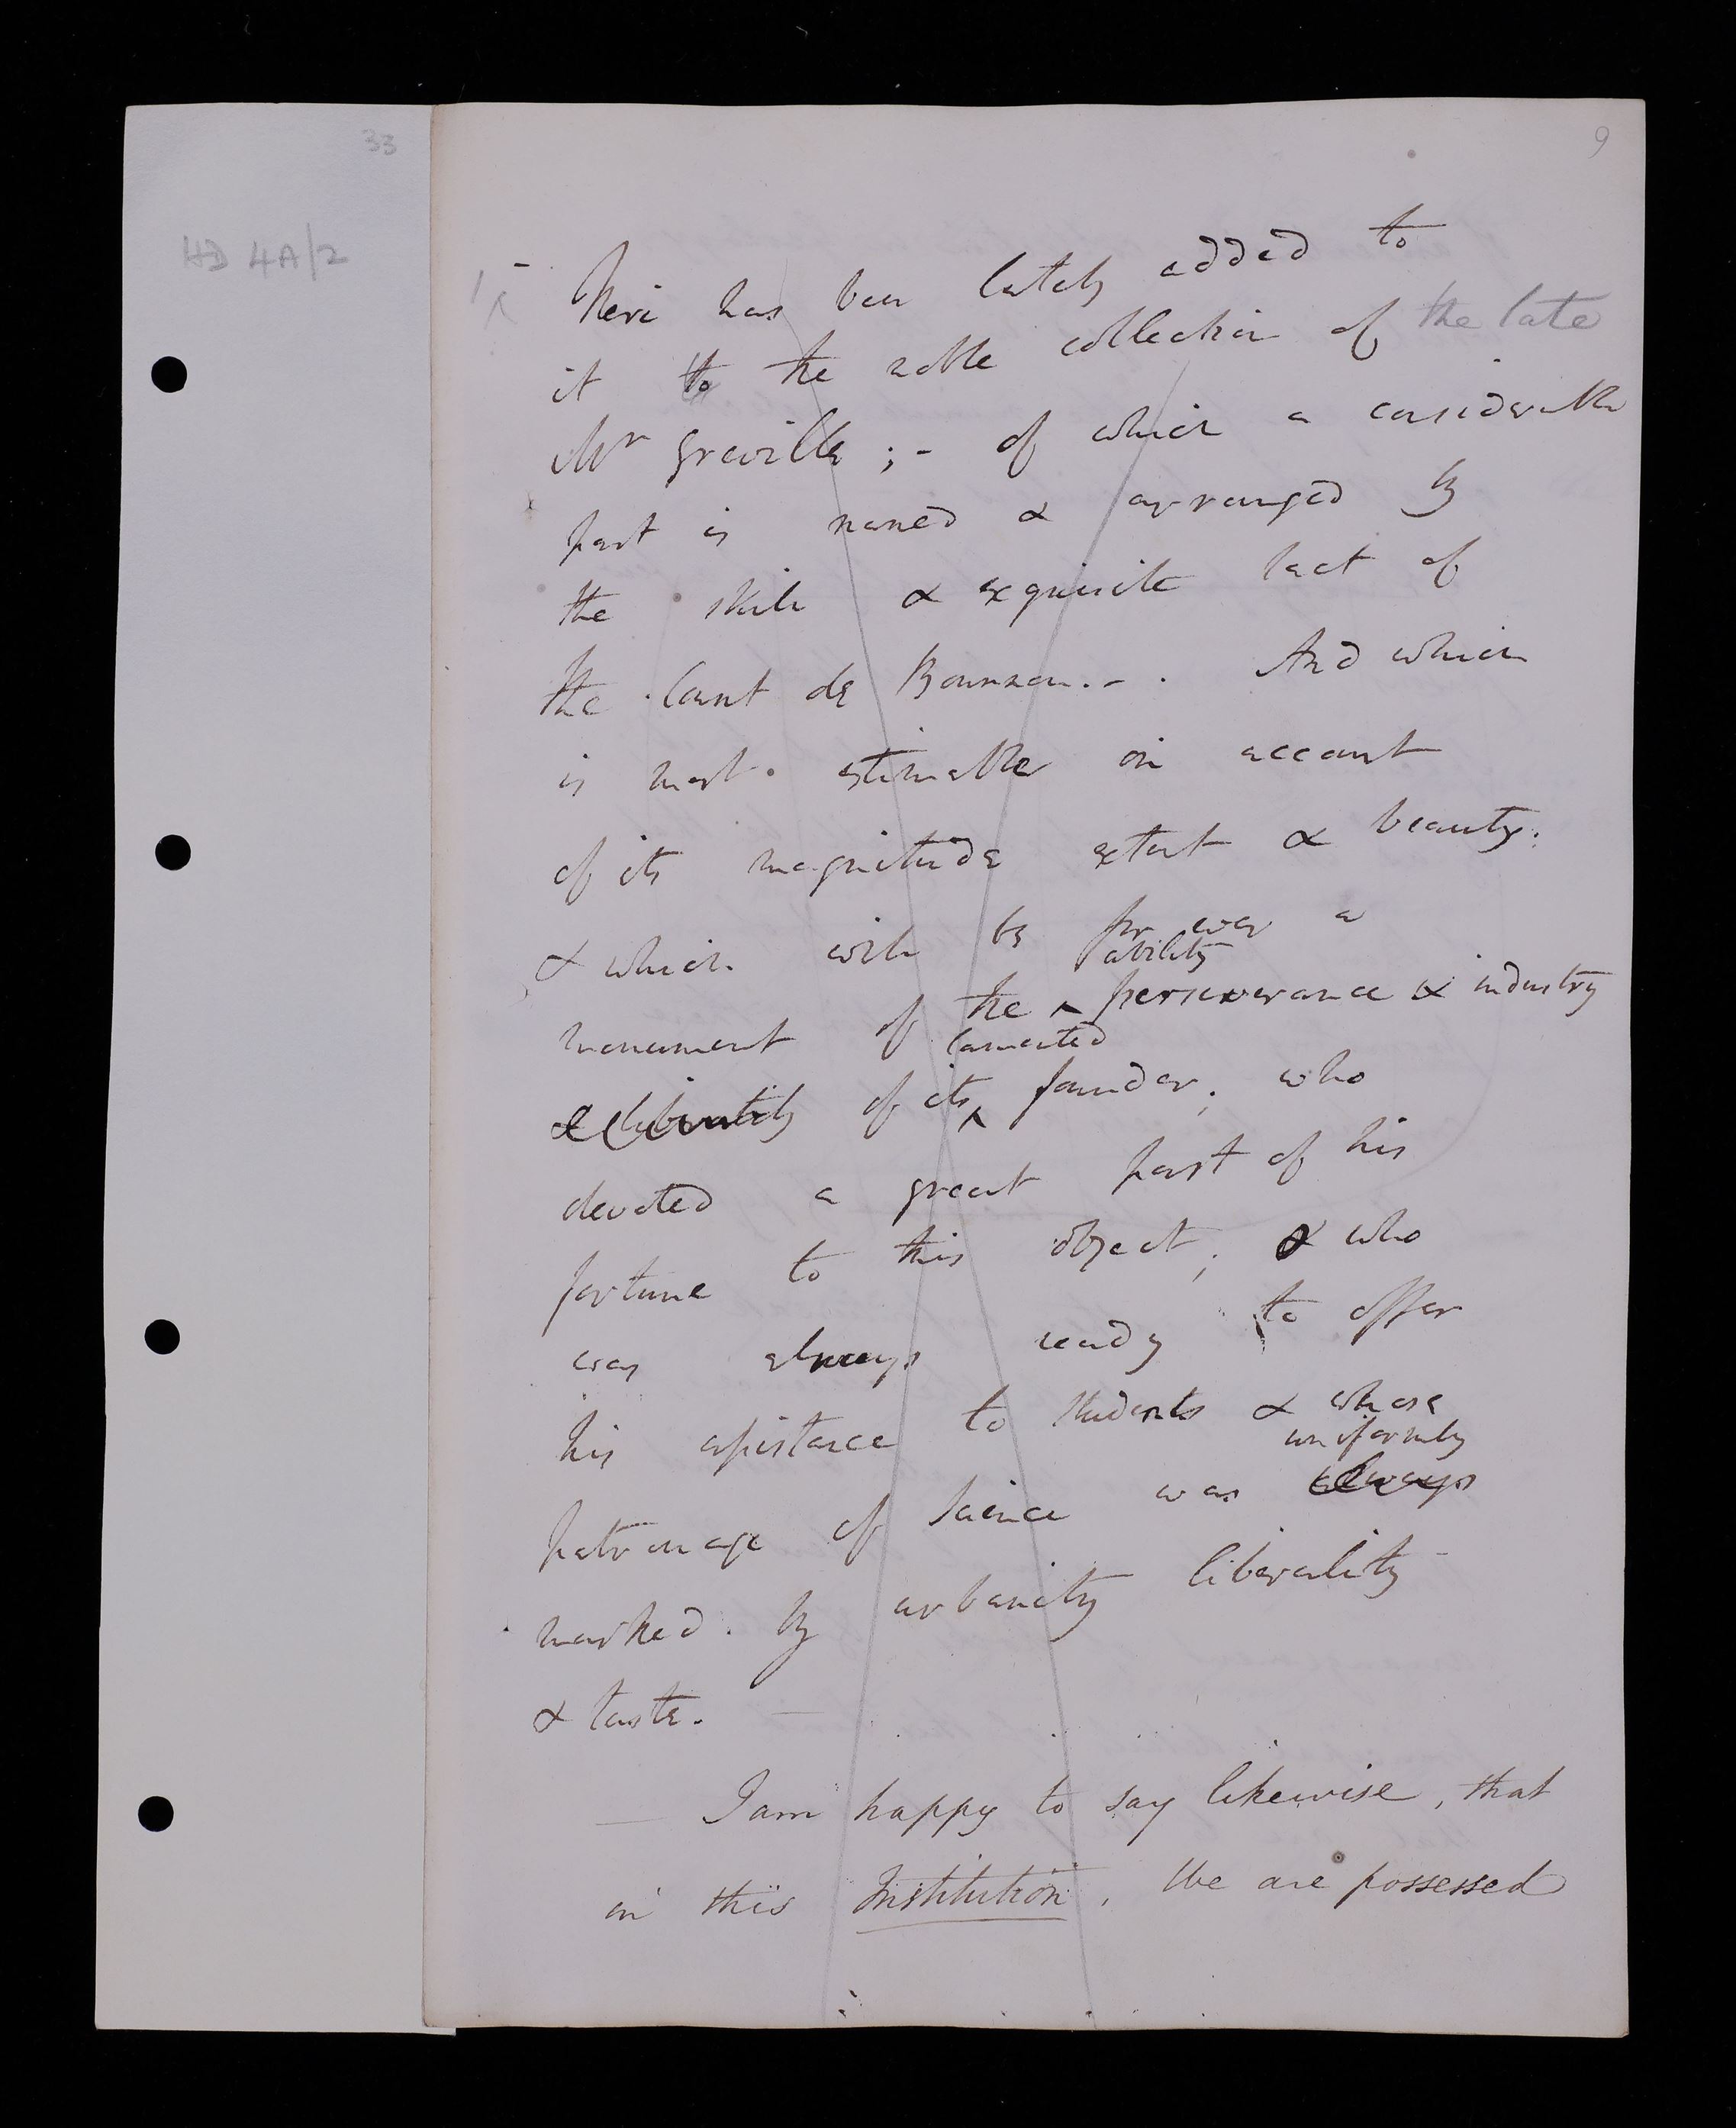 33
9
HD 4A/2
There has been lately added to
it to the noble collection of the late
Mr Greville ; - of which a considerable
part is named & arranged by
the skill & exquisite tact of
the Count de Bournon. - . And which
is most estimable on account
of its magnitude extent & beauty:
& which will be for ever a
ability
monument of the ^ perseverance & industry
lamented
of its ^ founder; who
devoted a great part of his
fortune to this object; & who
was always ready to offer
his assistance to students & whose
uniformly
patronage of Science was always
marked. by urbanity liberality
& taste. —
— I am happy to say likewise, that
in this Institution, We are possessed